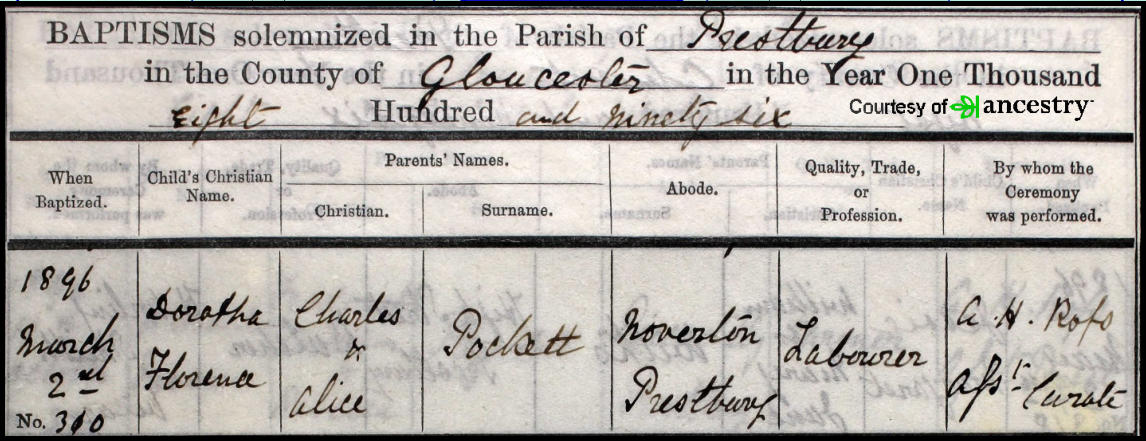 BAPTISMS solemnized in the Parish of Prestbury
in the County of Gloucester in the Year One Thousand
Eight Hundred and ninety six
Courtesy of ancestry
When Baptized.
Child's Christian Name.
Parents' Names.
Christian.
Surname.
Abode.
Quality, Trade, or Profession.
By whom the Ceremony was performed.
1896
March
2nd
No. 310
Doratha
Florence
Charles
&
Alice
Pockett
Noverton
Prestbury
Labourer
A. H.
Asst Curate